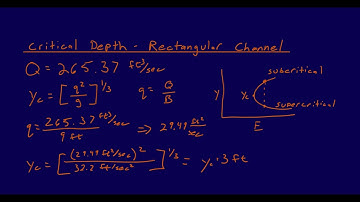 Critical Depth - Rectangular Channel
Q = 265.37 ft³/sec
yc = [q²/g]^1/3   q = Q/B
q = 265.37 ft³/sec / 9 ft ⇒ 29.49 ft²/sec
yc = [(29.49 ft²/sec)² / 32.2 ft/sec²]^1/3 = yc = 3 ft
subcritical
y
yc
supercritical
E